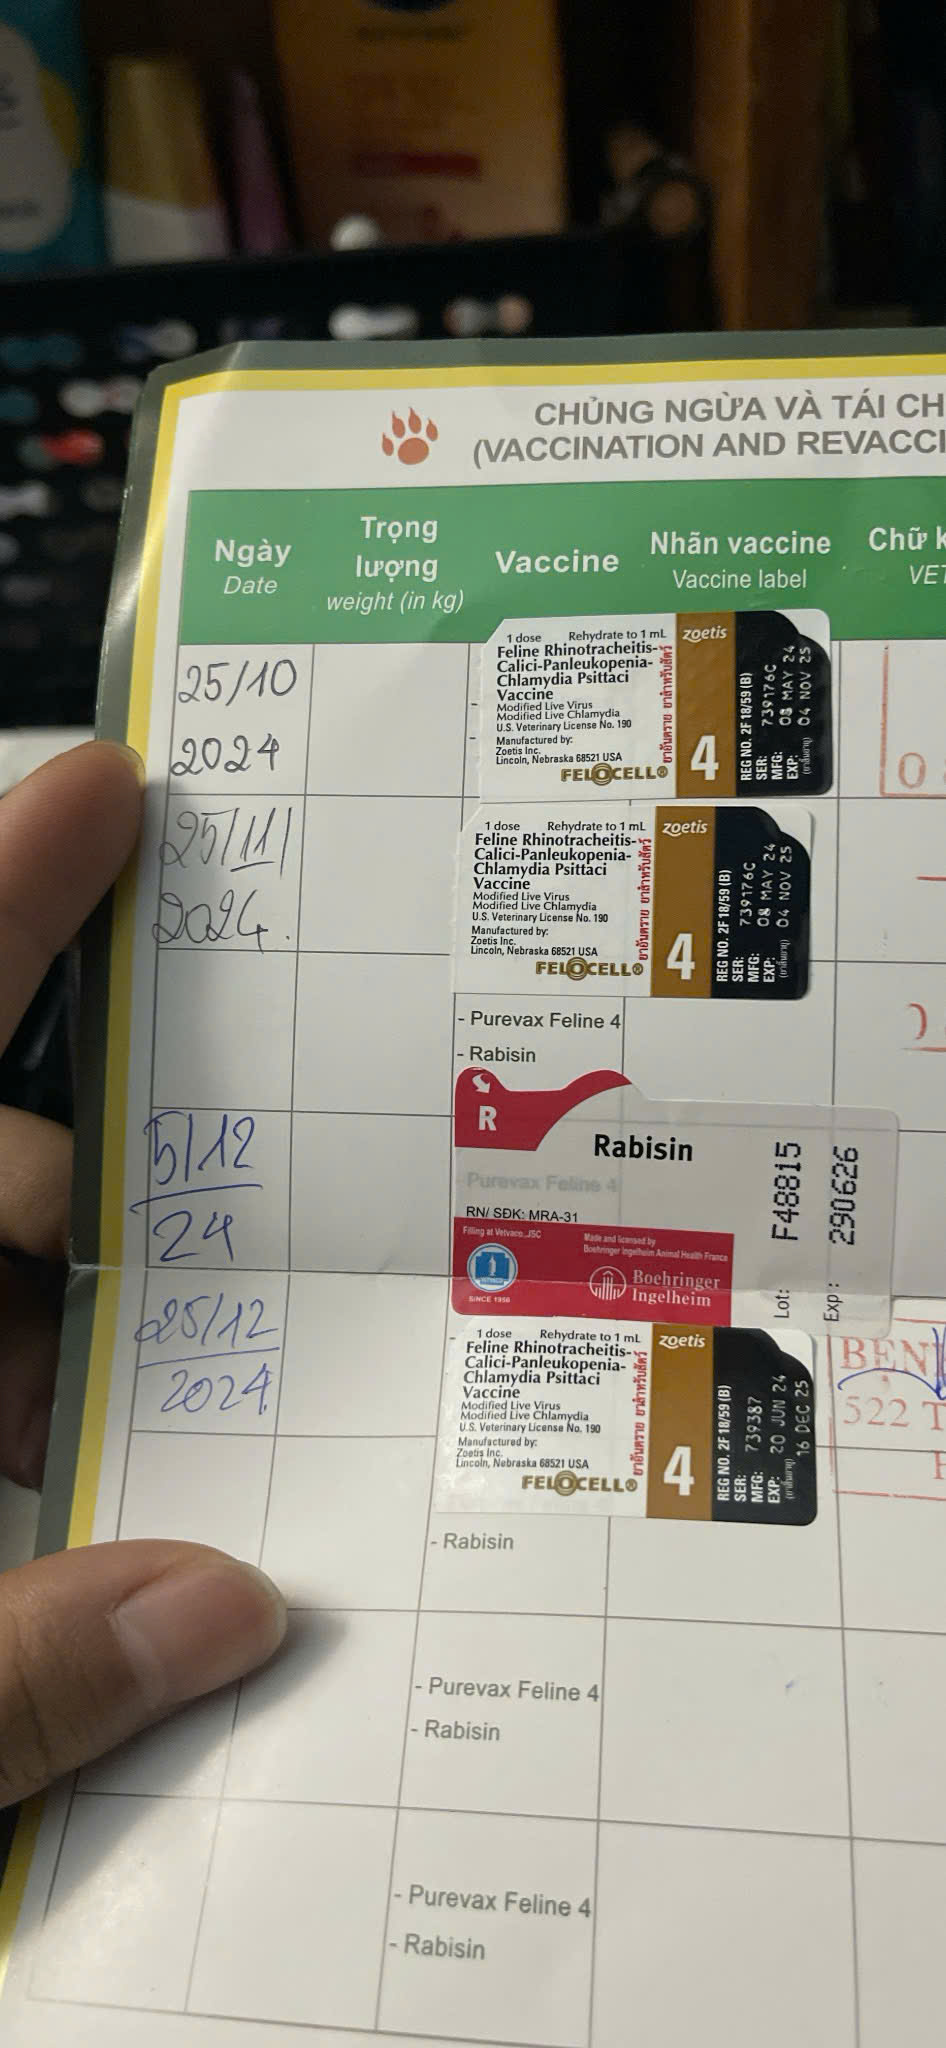 CHỦNG NGỪA VÀ TÁI CH
(VACCINATION AND REVACCI
Ngày
Date
Trọng
lượng
weight (in kg)
Vaccine
Nhãn vaccine
Vaccine label
Chữ k
VET
25/10
2024
1 dose Rehydrate to 1 mL
Feline Rhinotracheitis-
Calici-Panleukopenia-
Chlamydia Psittaci
Vaccine
Modified Live Virus
Modified Live Chlamydia
U.S. Veterinary License No. 190
Manufactured by:
Zoetis Inc.
Lincoln, Nebraska 68521 USA
FELOCELL®
ยาอันตราย ยาสำหรับสัตว์
zoetis
4
REG NO. 2F 18/59 (B)
SER: 739176C
MFG: 08 MAY 24
EXP: 04 NOV 25
(ยาสิ้นอายุ)
0
25/11/
2024.
1 dose Rehydrate to 1 mL
Feline Rhinotracheitis-
Calici-Panleukopenia-
Chlamydia Psittaci
Vaccine
Modified Live Virus
Modified Live Chlamydia
U.S. Veterinary License No. 190
Manufactured by:
Zoetis Inc.
Lincoln, Nebraska 68521 USA
FELOCELL®
ยาอันตราย ยาสำหรับสัตว์
zoetis
4
REG NO. 2F 18/59 (B)
SER: 739176C
MFG: 08 MAY 24
EXP: 04 NOV 25
(ยาสิ้นอายุ)
- Purevax Feline 4
- Rabisin
5/12
24
R
Rabisin
Purevax Feline 4
RN/ SĐK: MRA-31
Filling at Vetvaco.,JSC
VETVACO
SINCE 1956
Made and licensed by
Boehringer Ingelheim Animal Health France
Boehringer
Ingelheim
Lot: F48815
Exp: 290626
25/12
2024
1 dose Rehydrate to 1 mL
Feline Rhinotracheitis-
Calici-Panleukopenia-
Chlamydia Psittaci
Vaccine
Modified Live Virus
Modified Live Chlamydia
U.S. Veterinary License No. 190
Manufactured by:
Zoetis Inc.
Lincoln, Nebraska 68521 USA
FELOCELL®
ยาอันตราย ยาสำหรับสัตว์
zoetis
4
REG NO. 2F 18/59 (B)
SER: 739387
MFG: 20 JUN 24
EXP: 16 DEC 25
(ยาสิ้นอายุ)
BỆN
522 T
- Rabisin
- Purevax Feline 4
- Rabisin
- Purevax Feline 4
- Rabisin